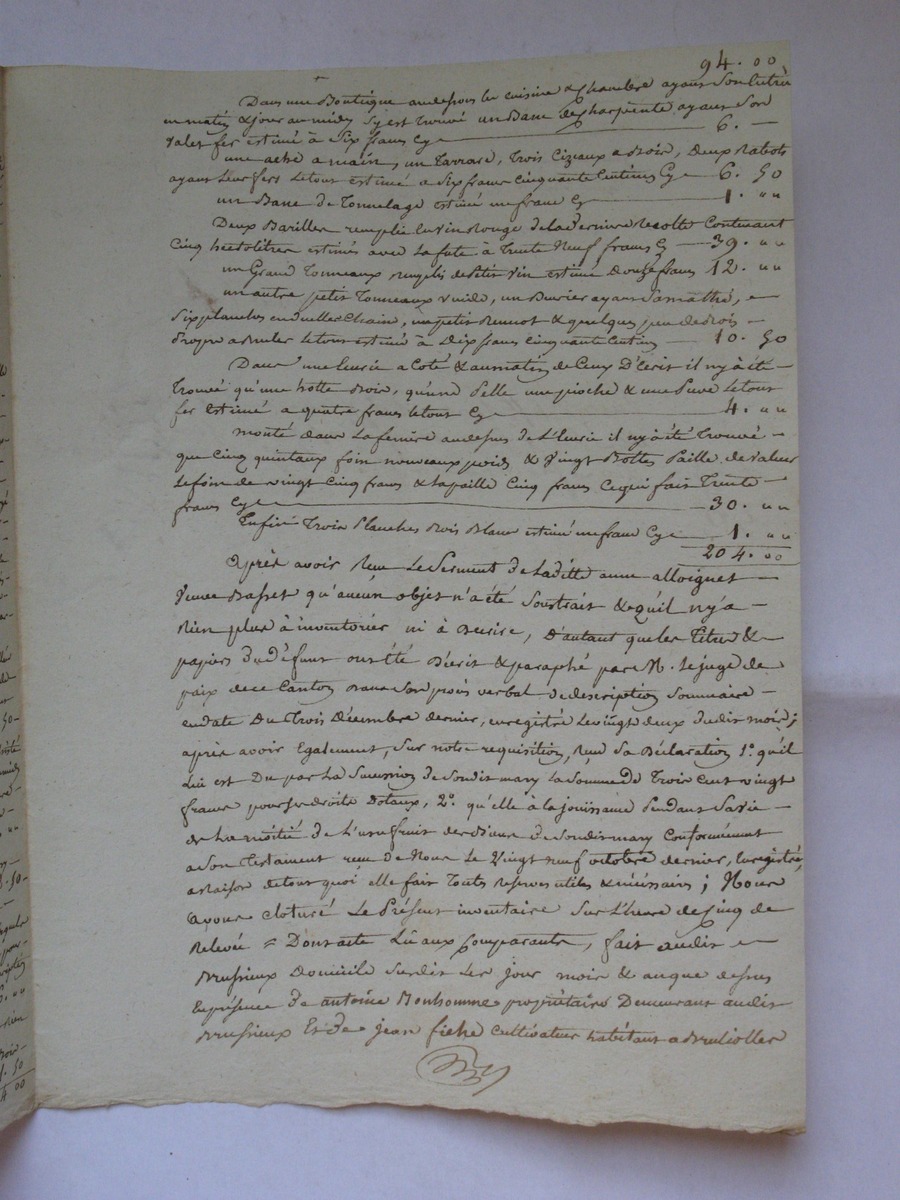 94. 00
Dans une Boutique au dessous les cuisine & chambre ayant son Entrée
au matin & jour au midy s'y est trouvé un Banc de charpente ayant son
valet fer estimé à six francs Cy 6. —
une ache a main, un Tarrare, Trois Cizeaux a Bois, Deux Rabots
ayant Leur fers Letout estimé a six francs cinquante Centimes Cy 6. 50
un Banc de Tonnelage estimé un franc Cy 1. " "
Deux Barilles remplie en vin Rouge de la derniere Recolte Contenant
Cinq hectolitres estimés avec La fute à Trente Neuf francs Cy 39. " "
un Grand Tonneaux remplis de Petit vin estimé Douze francs 12. " "
un autre petit Tonneaux vuide, un Cuvier ayant
six planches, un petit & quelques peu de Bois
propre a Bruler Letout estimé à Dix francs cinquante Centimes 10. 50
Dans une Ecurie a Coté & au matin de Ceux D'Ecrit il ny à été
Trouvé qu'une hotte Bois, qu'une Pelle une pioche & une Letout
fer Estimé a quatre francs letout Cy 4. " "
monté dans La feniere au dessus de L'Ecurie il ny à été Trouvé
que Cinq quintaux foin nouveaux poids & Vingt Bottes Paille de valeur
Le foin de vingt cinq francs & la paille Cinq francs Ce qui fais Trente
francs Cy 30. " "
Enfin Trois Planches Bois Blanc estimé un franc Cy 1. " "
204. 00
Après avoir Reçu Le Serment de Laditte anne alloignet
Veuve Basset qu'aucun objet n'a été Soustrait & qu'il ny a
Rien plus à inventorier ni à Décrire, D'autant que les Titres &
papiers Du Défunt ont été Décrit & paraphé par M. Le juge de
paix de ce Canton Dans Son procès verbal de description Sommaire
en date Du Trois Décembre dernier, enregistré Le vingt deux dudit mois;
après avoir Egalement, Sur notre requisition, Reçu Sa Déclaration 1° qu'il
Lui est Du par La Succession de Sondit mary La Somme de Trois Cent vingt
francs pour Ses droits Dotaux, 2° qu'elle à la jouissance Pendant Sa vie
de La moitié de L'usufruit des Biens de Sondit mary Conformément
a Son Testament reçu de Nous Le Vingt neuf octobre dernier, Enregistré,
a Raison de tout quoi elle fait Toutes Reserves utiles & nécéssaires; Nous
avons Cloturé Le Présent inventaire Sur L'heure de Cinq de
Relevée = Dont acte Lu aux Comparants, fait audit
Brussieux Domicile Susdit Les jour mois & an que dessus
En présence de antoine Bonhomme propriétaire Demeurant audit
Brussieux Et de jean fiche cultivateur habitant a Brullioles